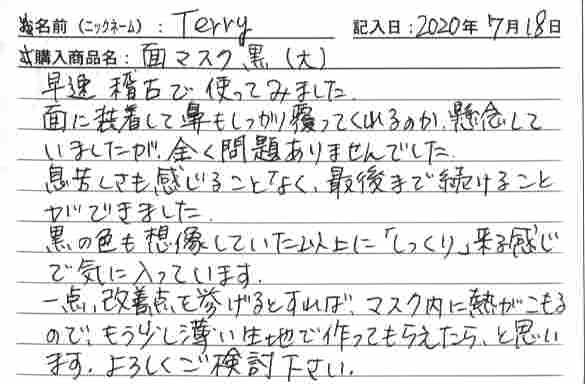 お名前（ニックネーム）：Terry 記入日：2020年7月18日
ご購入商品名：面マスク黒（大）
早速稽古で使ってみました。
面に装着して鼻もしっかり覆ってくれるのか、懸念して
いましたが、全く問題ありませんでした。
息苦しさも感じることなく、最後まで続けること
ができました。
黒の色も想像していた以上に「しっくり」来る感じ
で気に入っています。
一点、改善点を挙げるとすれば、マスク内に熱がこもる
ので、もう少し薄い生地で作ってもらえたら、と思い
ます。よろしくご検討下さい。